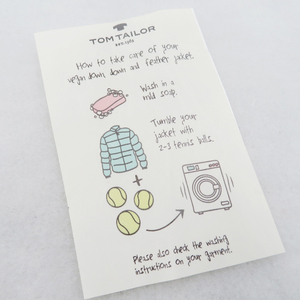 TOM TAILOR
How to take care of your
vegan down, down and feather jacket.
Wash in a
mild soap.
Tumble your
jacket with
2-3 tennis balls.
Please also check the washing
instructions on your garment.